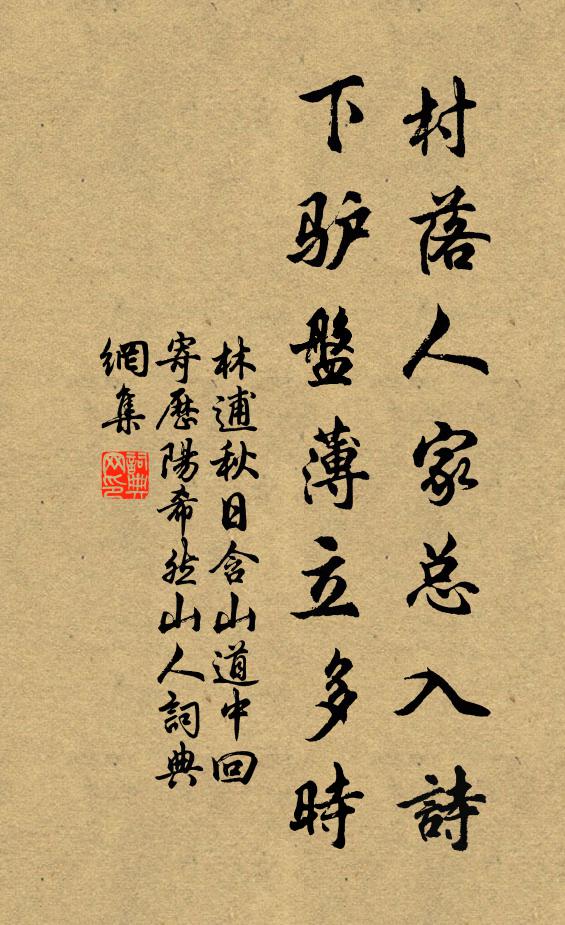 村落人家总入詩
下驴盤薄立多時
林逋秋日含山道中回
寄歷陽希然山人詞典
網集
詞典
网印